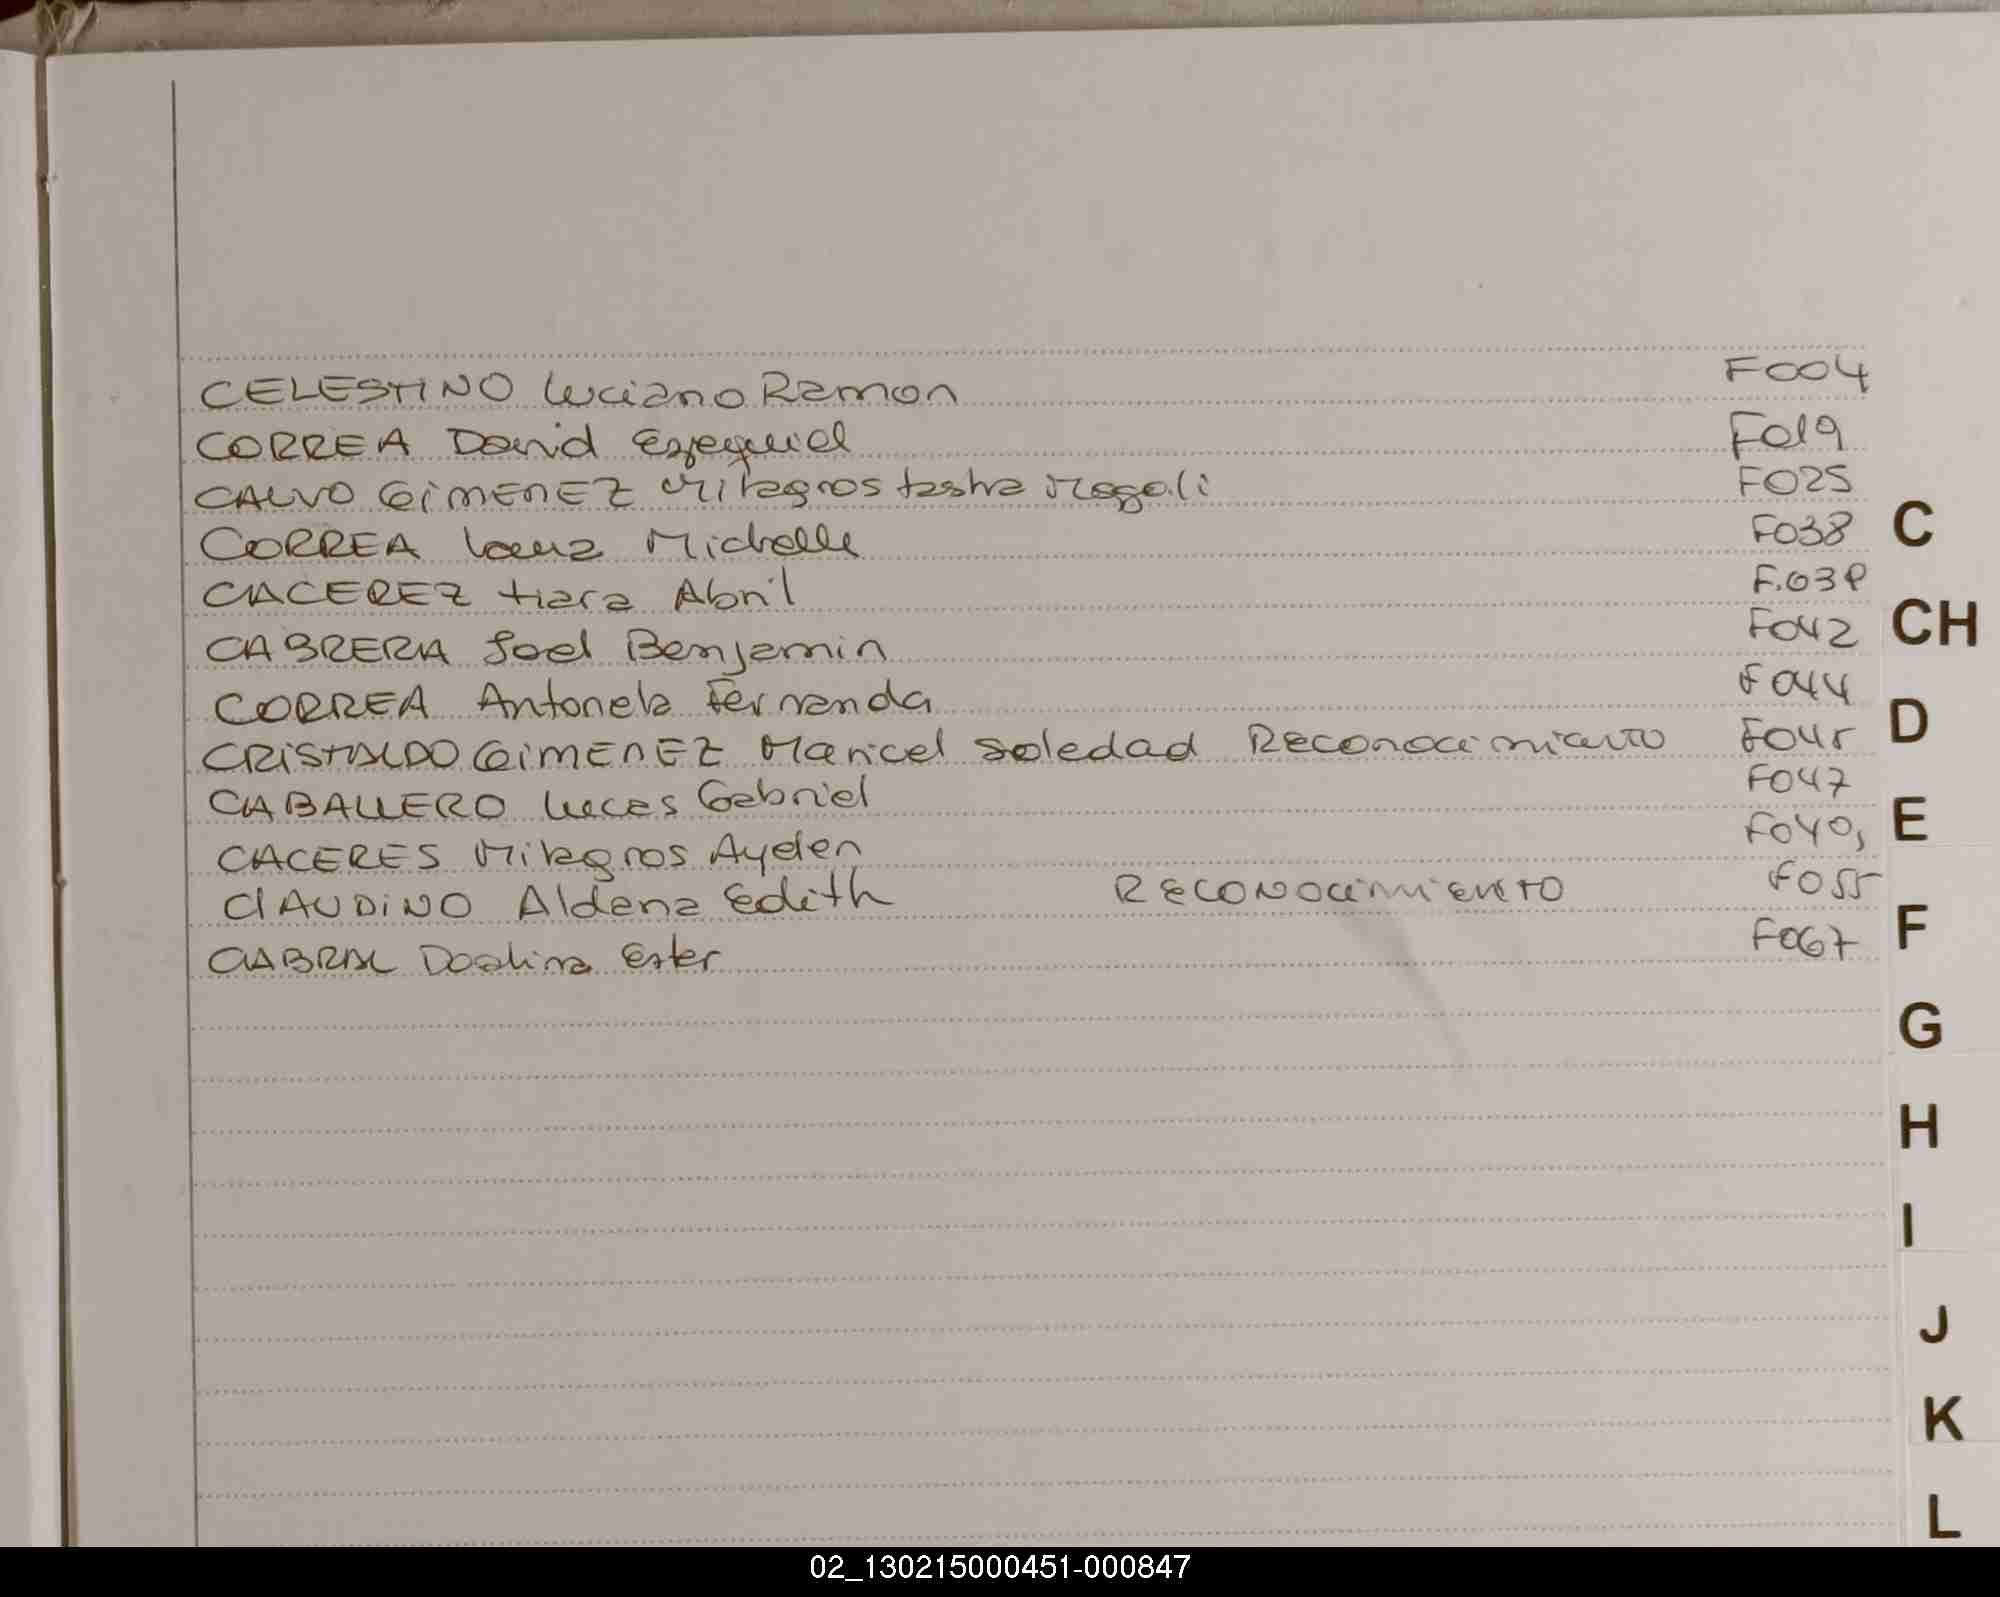 CELESTINO Luciano Ramon F004
CORREA David Ezequiel F019
CALVO GiMENEZ Milagros tasha Magali F025
CORREA Michelle F038
CACEREZ tiara Abril F.039
CABRERA Joel Benjamin F042
CORREA Antonela Fernanda F044
CRISTALDO GiMENEZ Maricel Soledad Reconocimiento F045
CABALLERO Lucas Gabriel F047
CACERES Milagros Ayelen F040,
ClAUDiNO Aldana Edith RECONOCIMIENTO F055
CABRAL Ester F067
C
CH
D
E
F
G
H
I
J
K
L
02_130215000451-000847